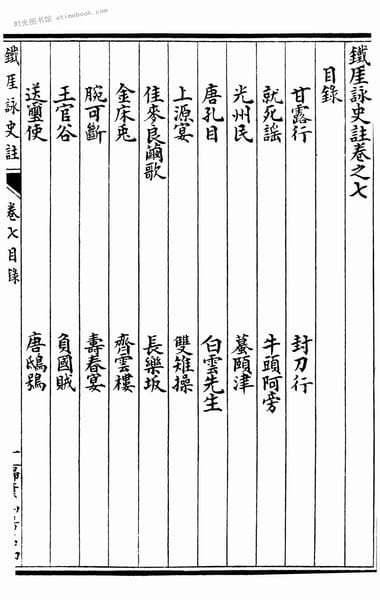 时光图书馆 atimebook.com
鐵厓詠史註卷之七
目錄
甘露行 封刀行
就死謡 牛頭阿旁
光州民 蟇頤津
唐孔目 白雲先生
上源宴 雙雉操
佳麥良繭歌 長樂坂
金床兎 齊雲樓
腕可斷 壽春宴
王官谷 負國賊
送璽使 唐鴟鴞
鐵厓詠史註 卷七目錄 一